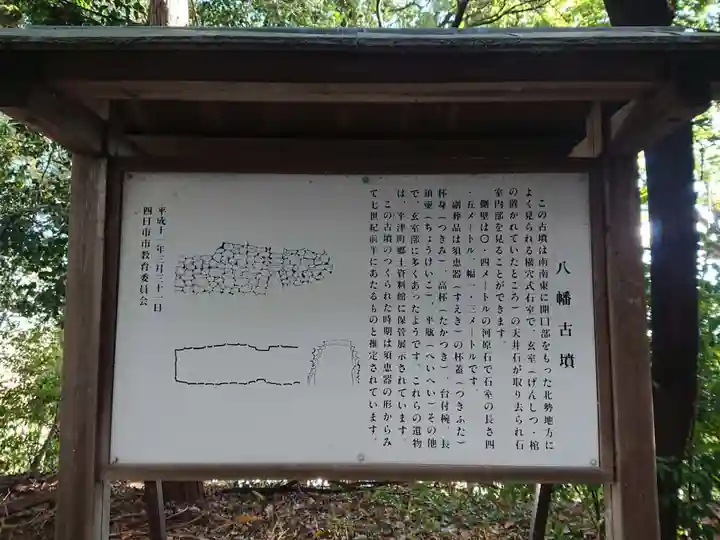 八幡古墳
この古墳は南南東に開口部をもった北勢地方に
よく見られる横穴式石室で、玄室（げんしつ・棺
の置かれていたところ）の天井石が取り去られ石
室内部を見ることができます。
側壁は〇・四メートルの河原石で石室の長さ四
・五メートル・幅一・三メートルです。
副葬品は須恵器（すえき）の杯蓋（つきふた）
杯身（つきみ）、高杯（たかつき）、台付椀、長
頸壺（ちょうけいこ）、平瓶（へいへい）その他
で、玄室部に多くあったようです。これらの遺物
は、平津町郷土資料館に保管展示されています。
この古墳のつくられた時期は須恵器の形からみ
て七世紀前半にあたるものと推定されています。
平成十二年三月三十一日
四日市市教育委員会